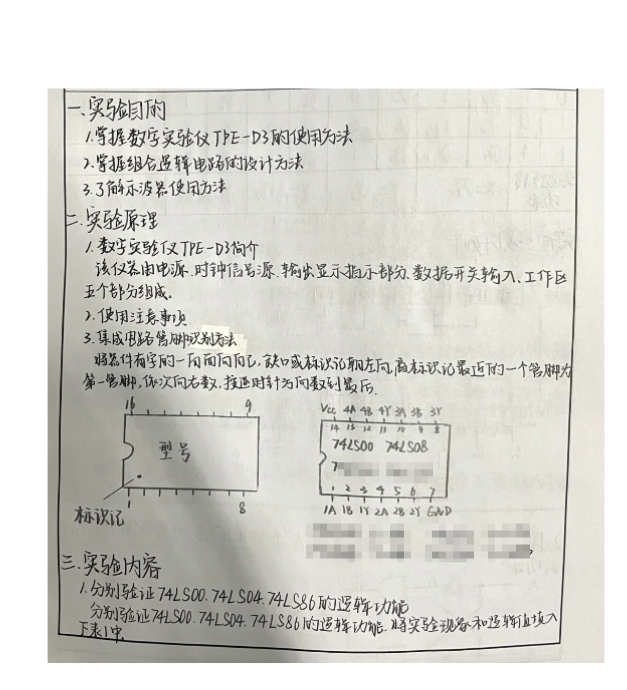 一.实验目的
1.掌握数字实验仪TPE-D3的使用方法
2.掌握组合逻辑电路的设计方法
3.了解示波器使用方法
二.实验原理
1.数字实验仪TPE-D3简介
该仪器由电源.时钟信号源.输出显示指示部分.数据开关输入、工作区
五个部分组成.
2.使用注意事项
3.集成电路管脚识别方法
将器件有字的一面面向自己,缺口或标识记朝左向,离标识记最近的一个管脚为
第一管脚,依次向右数,按逆时针方向数到最后.
16 9
型号
标识记
8
Vcc 4A 4B 4Y 3A 3B 3Y
14 13 12 11 10 9 8
74LS00 74LS08
7
1 2 3 4 5 6 7
1A 1B 1Y 2A 2B 2Y GND
三.实验内容
1.分别验证74LS00.74LS04.74LS86的逻辑功能
分别验证74LS00.74LS04.74LS86的逻辑功能.将实验现象和逻辑值填入
下表1中.